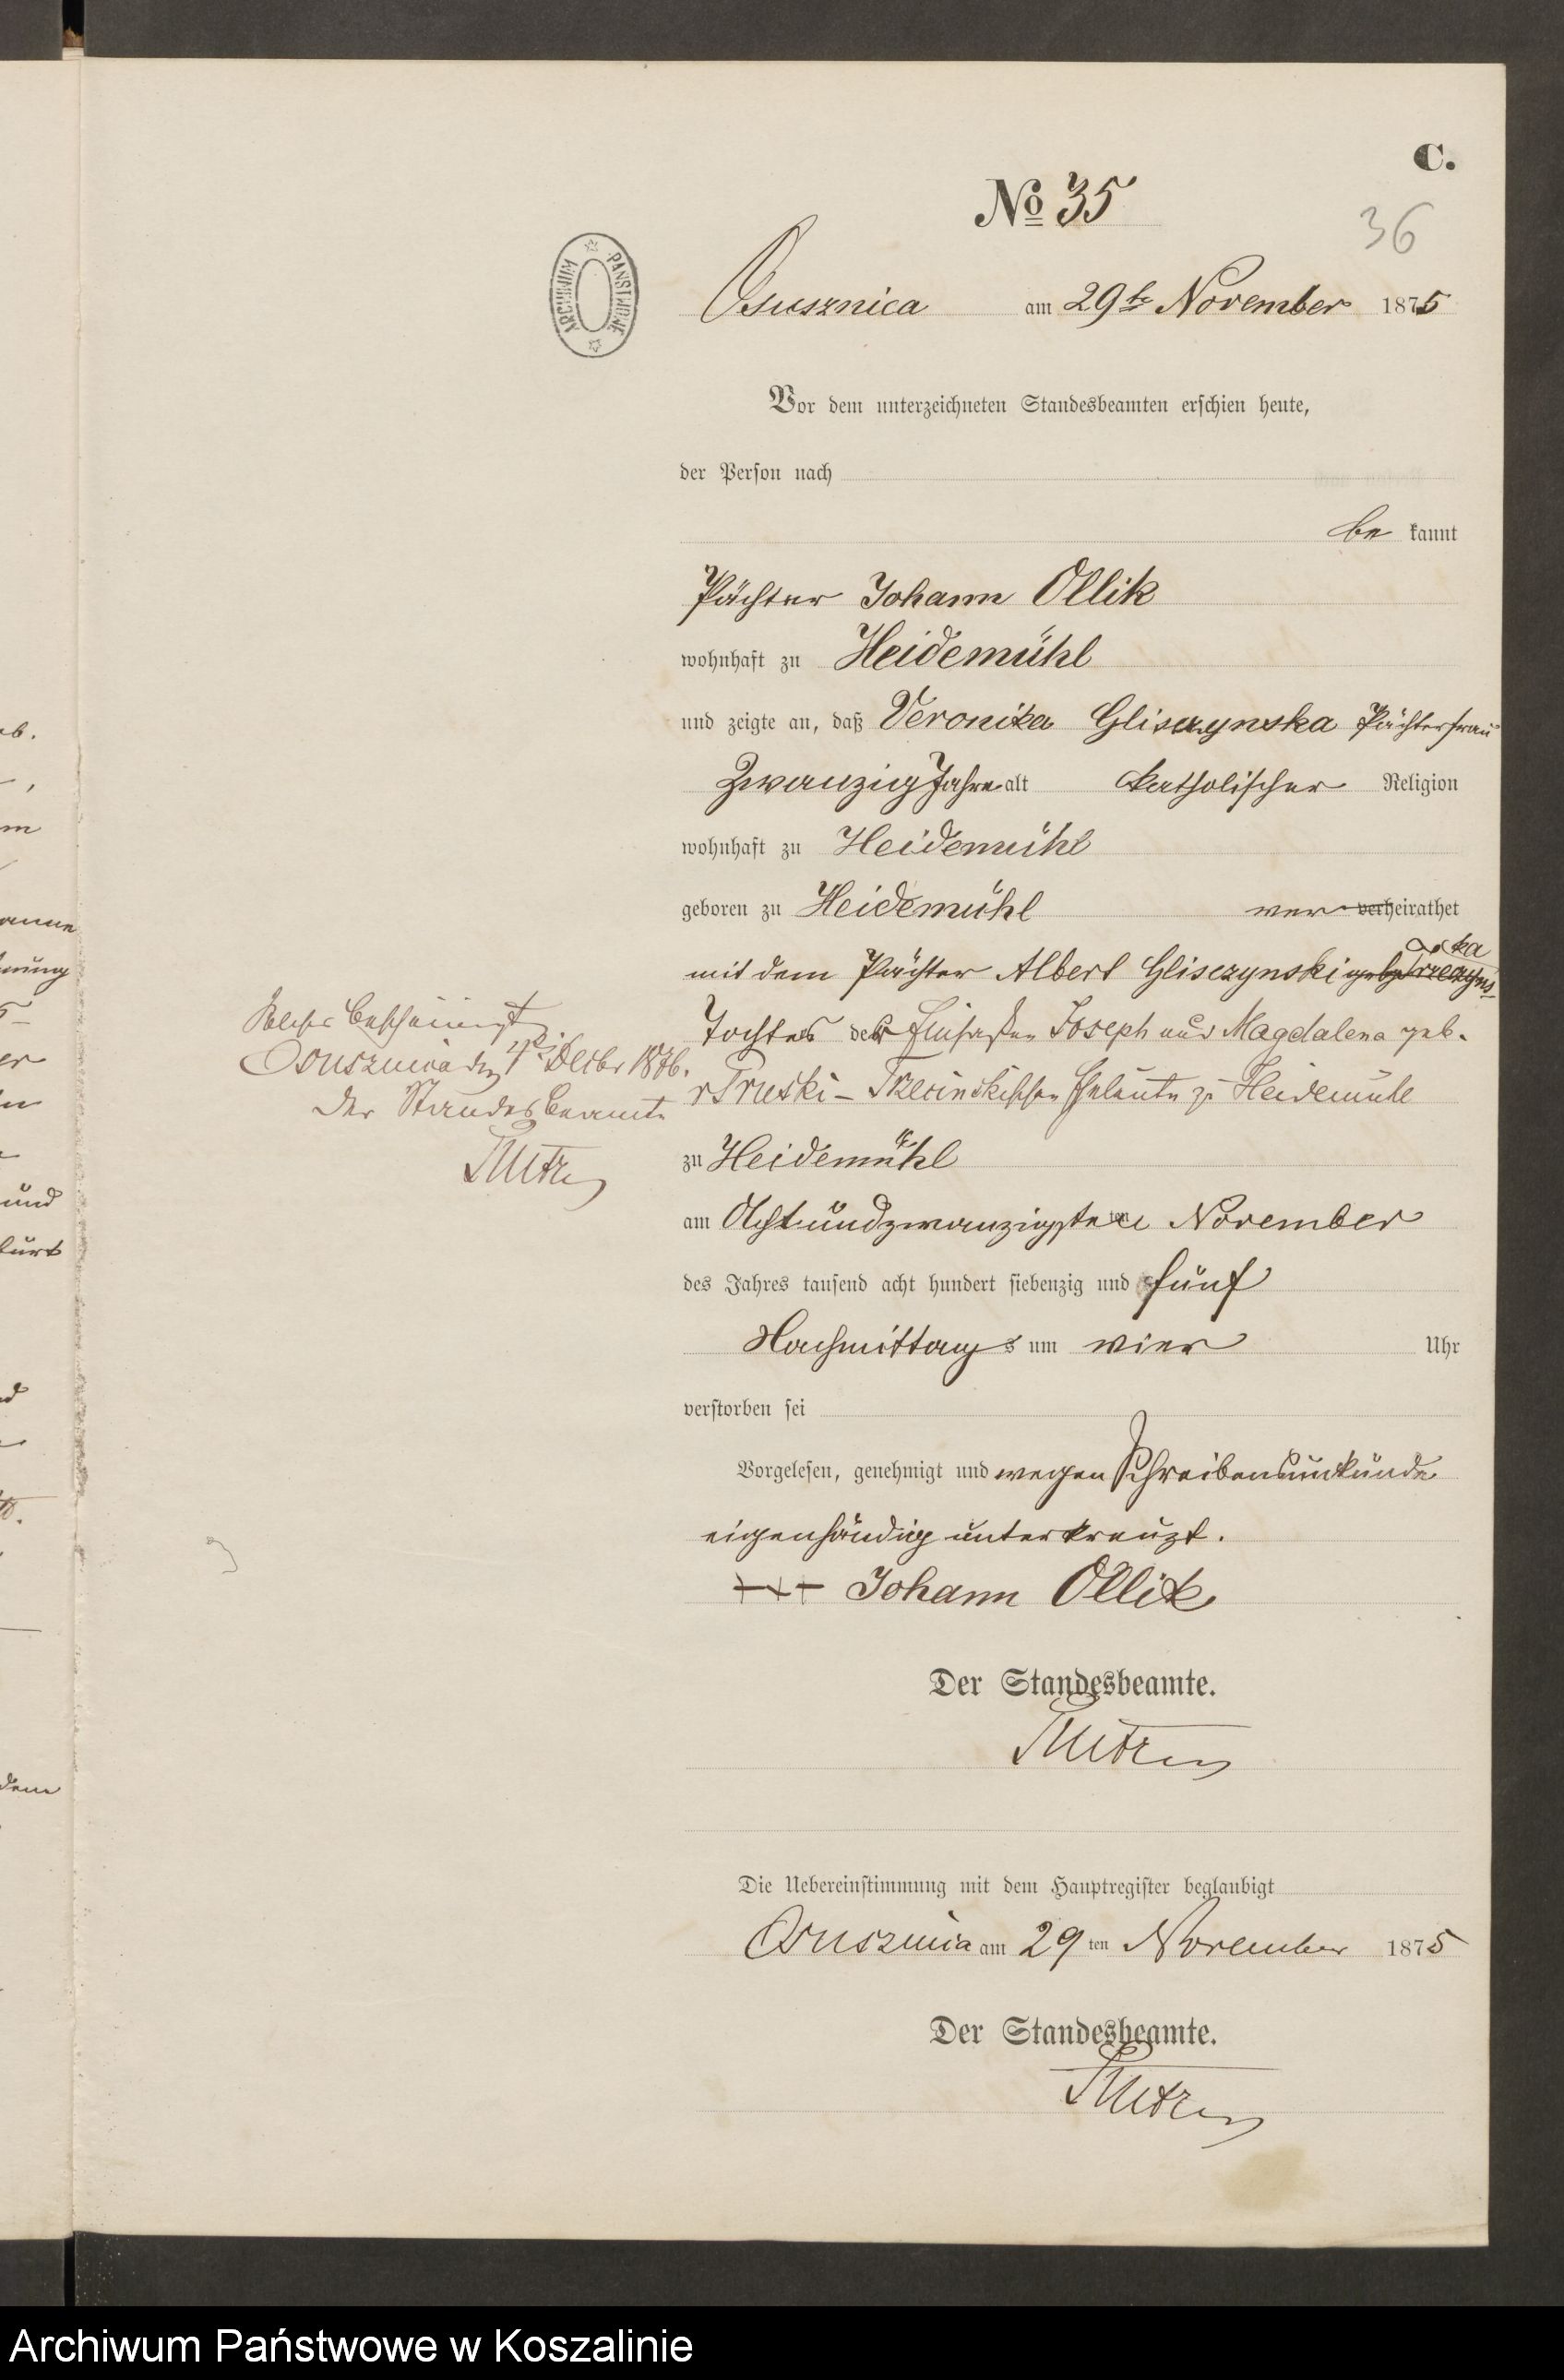 C.
No 35
36
ARCHIWUM PAŃSTWOWE
Osusznica am 29te November 1875
Vor dem unterzeichneten Standesbeamten erschien heute,
der Person nach
be kannt
Pächter Johann Ollik
wohnhaft zu Heidemühl
und zeigte an, daß Veronika Glisczynska Pächterfrau
Zwanzig Jahre alt katholischer Religion
wohnhaft zu Heidemühl
geboren zu Heidemühl war verheirathet
mit dem Pächter Albert Glisczynski geb.
Tochter der Einsassen Joseph und Magdalena geb.
Heidemühle
zu Heidemühl
am Achtundzwanzigsten November
des Jahres tausend acht hundert siebenzig und fünf
Nachmittags um vier Uhr
verstorben sei
Vorgelesen, genehmigt und wegen Schreibensunkunde
eigenhändig unterkreuzt.
+++ Johann Ollik
Der Standesbeamte.
Die Uebereinstimmung mit dem Hauptregister beglaubigt
Osusznica am 29 ten November 1875
Der Standesbeamte.
bescheinigt
Osusznica den 4 Decbr 1876.
Der Standesbeamte
Archiwum Państwowe w Koszalinie